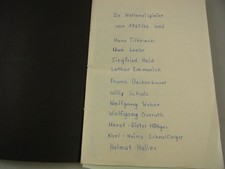 Die Nationalspieler
von 1965/66 sind
Hans Tilkowski
Uwe Seeler
Siegfried Held
Lothar Emmerich
Franz Beckenbauer
Willy Schulz
Wolfgang Weber
Wolfgang Overath
Horst-Dieter Höttges
Karl-Heinz Schnellinger
Helmut Haller